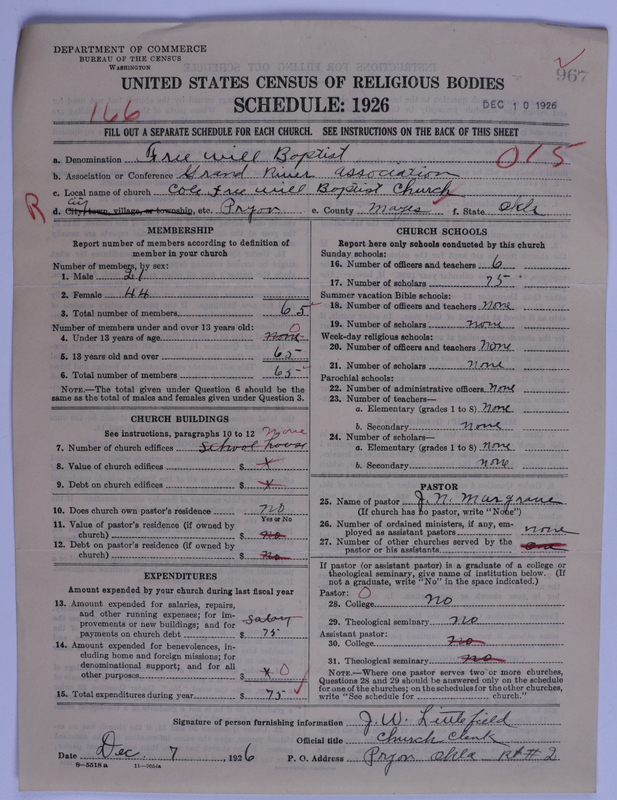 DEPARTMENT OF COMMERCE
BUREAU OF THE CENSUS
WASHINGTON
967
UNITED STATES CENSUS OF RELIGIOUS BODIES
SCHEDULE: 1926
DEC 10 1926
166
FILL OUT A SEPARATE SCHEDULE FOR EACH CHURCH. SEE INSTRUCTIONS ON THE BACK OF THIS SHEET
a. Denomination Free will Baptist
015
b. Association or Conference Grand River association
c. Local name of church Cole Free will Baptist Church
R
d. City, town, village, or township, etc. Pryor e. County Mayes f. State Okla
MEMBERSHIP
Report number of members according to definition of
member in your church
Number of members, by sex:
1. Male 21
2. Female 44
3. Total number of members 65
Number of members under and over 13 years old:
4. Under 13 years of age none 0
5. 13 years old and over 65
6. Total number of members 65
NOTE.—The total given under Question 6 should be
the same as the total of males and females given under Question 3.
CHURCH BUILDINGS
See instructions, paragraphs 10 to 12 none
7. Number of church edifices School house
8. Value of church edifices $ x
9. Debt on church edifices $ x
10. Does church own pastor's residence no
Yes or No
11. Value of pastor's residence (if owned by
church) $ no
12. Debt on pastor's residence (if owned by
church) $ no
EXPENDITURES
Amount expended by your church during last fiscal year
13. Amount expended for salaries, repairs,
and other running expenses; for im-
provements or new buildings; and for
payments on church debt $ Salary 75
14. Amount expended for benevolences, in-
cluding home and foreign missions; for
denominational support; and for all
other purposes $ x 0
15. Total expenditures during year $ 75
CHURCH SCHOOLS
Report here only schools conducted by this church
Sunday schools:
16. Number of officers and teachers 6
17. Number of scholars 75
Summer vacation Bible schools:
18. Number of officers and teachers none
19. Number of scholars none
Week-day religious schools:
20. Number of officers and teachers none
21. Number of scholars none
Parochial schools:
22. Number of administrative officers none
23. Number of teachers—
a. Elementary (grades 1 to 8) none
b. Secondary none
24. Number of scholars—
a. Elementary (grades 1 to 8) none
b. Secondary none
PASTOR
25. Name of pastor J. N. Margrave
(If church has no pastor, write "None")
26. Number of ordained ministers, if any, em-
ployed as assistant pastors none
27. Number of other churches served by the
pastor or his assistants one
If pastor (or assistant pastor) is a graduate of a college or
theological seminary, give name of institution below. (If
not a graduate, write "No" in the space indicated.)
Pastor: 0
28. College no
29. Theological seminary no
Assistant pastor:
30. College no
31. Theological seminary no
NOTE.—Where one pastor serves two or more churches,
Questions 28 and 29 should be answered only on the schedule
for one of the churches; on the schedules for the other churches,
write "See schedule for church."
Signature of person furnishing information J. W. Littlefield
Official title Church Clerk
Date Dec. 7, 1926 P. O. Address Pryor Okla Rt # 2
8—5518a